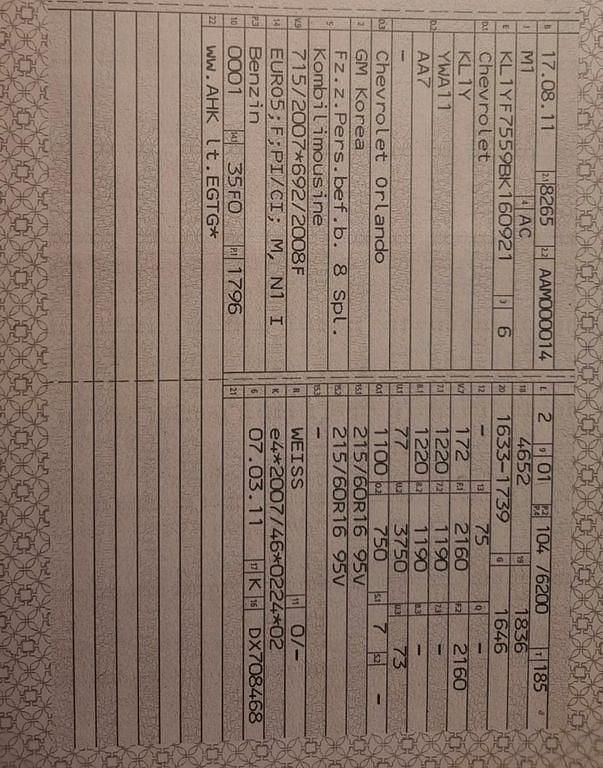 B 17.08.11 2.1 8265 2.2 AAM000014
J M1 4 AC
E KL1YF7559BK160921 3 6
D.1 Chevrolet
D.2 KL1Y
YWA11
AA7
-
D.3 Chevrolet Orlando
2 GM Korea
5 Fz.z.Pers.bef.b. 8 Spl.
Kombilimousine
V.9 715/2007*692/2008F
14 EURO5;F;PI/CI; M, N1 I
P.3 Benzin
10 0001 14.1 35F0 P.1 1796
22 WW.AHK lt.EGTG*
L 2 9 01 P.2 P.4 104 /6200 T 185
18 4652 19 1836
20 1633-1739 G 1646
12 - 13 75 Q -
V.7 172 F.1 2160 F.2 2160
7.1 1220 7.2 1190 7.3 -
8.1 1220 8.2 1190 8.3 -
U.1 77 U.2 3750 U.3 73
O.1 1100 O.2 750 S.1 7 S.2 -
15.1 215/60R16 95V
15.2 215/60R16 95V
15.3 -
R WEISS 11 0/-
K e4*2007/46*0224*02
6 07.03.11 17 K 16 DX708468
21